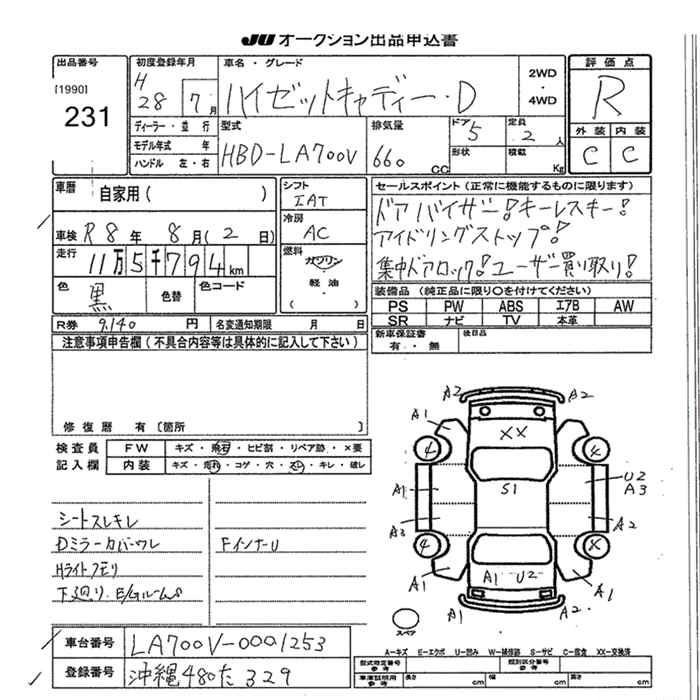 JU オークション出品申込書
出品番号 初度登録年月 車名・グレード 評価点
[1990] 231
H 28 7月
ハイゼットキャディー・D
2WD・4WD
R
ディーラー・並行 型式 排気量 ドア 定員 外装 内装
モデル年式 年 5 2人 C C
ハンドル 左・右 HBD-LA700V 660cc 形状 積載 Kg
車歴 自家用( ) シフト IAT
セールスポイント(正常に機能するものに限ります)
ドアバイザー!キーレスキー!
アイドリングストップ!
集中ドアロック!ユーザー買い取り!
車検 R8年 8月(2日) 冷房 AC
走行 11万5千794km 燃料 ガソリン・軽油・( )
色 黒 色替 色コード
装備品(純正品に限り○を付けてください)
PS PW ABS エアB AW
SR ナビ TV 本革
R券 9,140円 名変通知期限 月 日
新車保証書 有・無 後日品
注意事項申告欄(不具合内容等は具体的に記入して下さい)
修復歴 有〔箇所 〕
検査員記入欄 FW キズ・飛石・ヒビ割・リペア跡・×要
内装 キズ・汚れ・コゲ・穴・スレ・キレ・破レ
シートスレキレ
Dミラーカバーワレ FインナーU
Hライトクモリ
A2 A2
A1 A1
XX
4 4
A1 S1 U2 A3
A3 A2
4 X
A1 A1 U2 A1
A1 A2
スペア
A=キズ E=エクボ U=凹み W=補修跡 S=サビ C=腐食 XX=交換済
車台番号 LA700V-0001253
登録番号 沖縄480た329
型式指定番号 参考 類別区分番号 参考
車庫証明用 参考 長さ cm 幅 cm 高さ cm